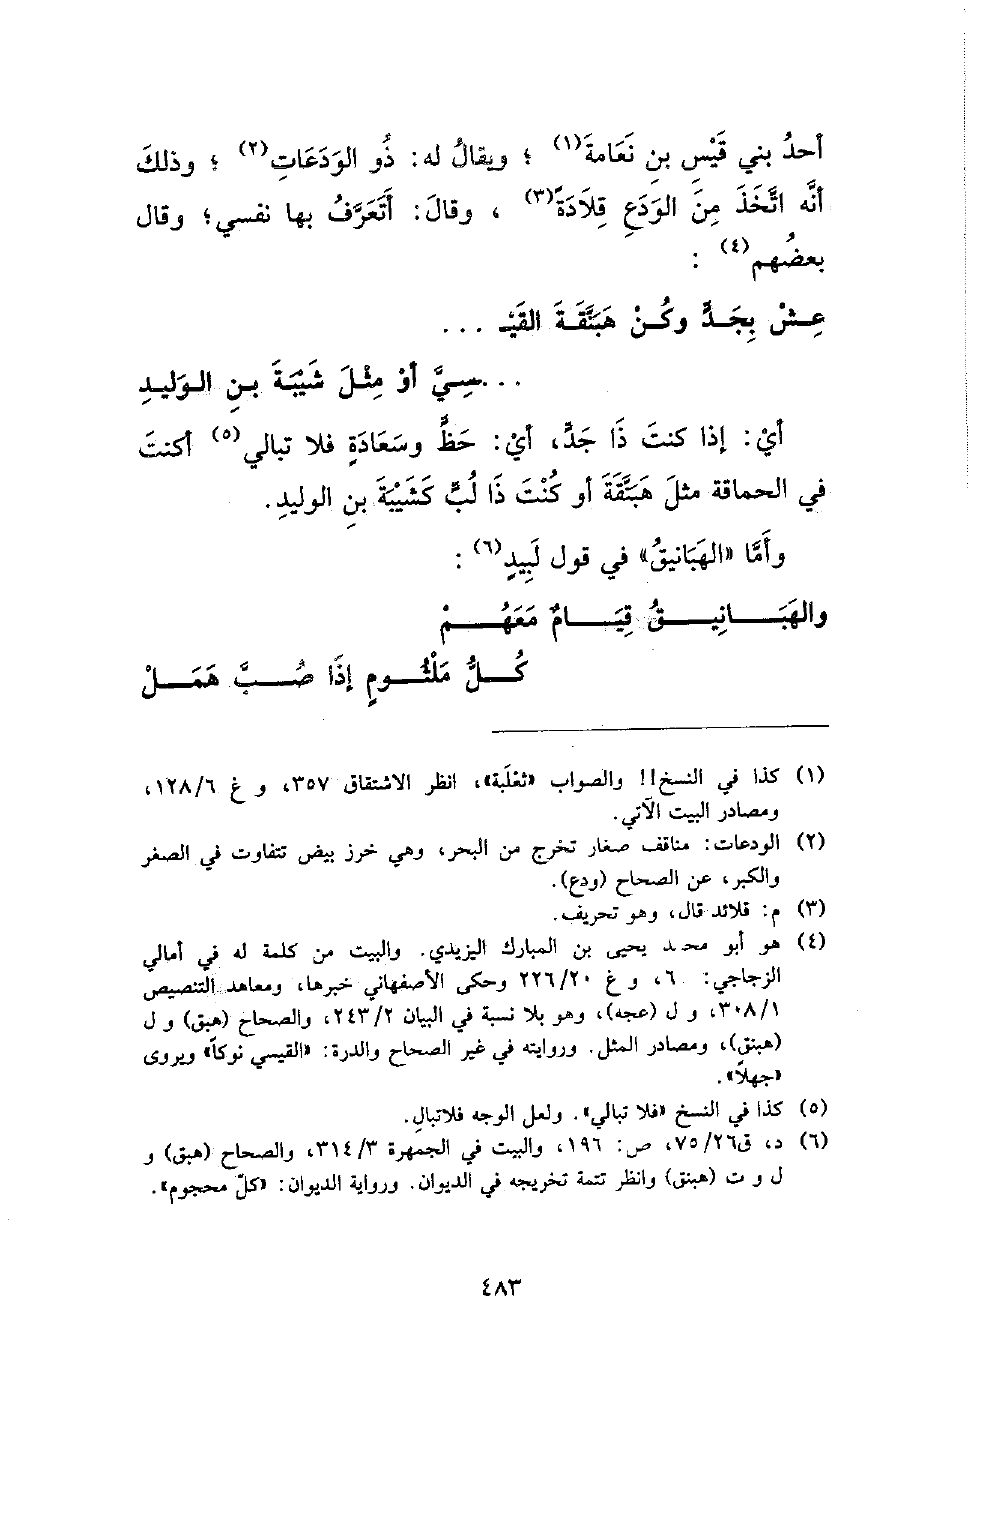 أحدُ بني قَيْسِ بنِ نَعَامة(١) ؛ ويقالُ له: ذُو الوَدَعَاتِ(٢) ؛ وذلكَ
أنَّه اتَّخَذَ مِنَ الوَدَعِ قِلادَةً(٣) ، وقالَ: أَتَعَرَّفُ بها نفسي؛ وقال
بعضُهم(٤) :
عِشْ بِجَدٍّ وكُنْ هَبَنَّقَةَ القَيْـ ...
...ـسِيَّ أوْ مِثْلَ شَيْبَةَ بنِ الوَليدِ
أيْ: إذا كنتَ ذَا جَدٍّ، أيْ: حَظٍّ وسَعَادَةٍ فلا تبالي(٥) أكنتَ
في الحماقة مثلَ هَبَنَّقَةَ أو كُنْتَ ذَا لُبٍّ كَشَيْبَةَ بنِ الوليدِ.
وأَمَّا «الهَبَانيقُ» في قول لَبِيدٍ(٦) :
والهَبَانِيقُ قِيَامٌ مَعَهُمْ
كُلُّ مَلْثُومٍ إذَا صُبَّ هَمَلْ
(١) كذا في النسخ!! والصواب «ثعْلَبة»، انظر الاشتقاق ٣٥٧، و غ ١٢٨/٦،
ومصادر البيت الآتي.
(٢) الودعات: مناقف صغار تخرج من البحر، وهي خرز بيض تتفاوت في الصغر
والكبر، عن الصحاح (ودع).
(٣) م: قلائد قال، وهو تحريف.
(٤) هو أبو محمد يحيى بن المبارك اليزيدي. والبيت من كلمة له في أمالي
الزجاجي: ٦، و غ ٢٢٦/٢٠ وحكى الأصفهاني خبرها، ومعاهد التنصيص
٣٠٨/١، و ل (عجه)، وهو بلا نسبة في البيان ٢٤٣/٢، والصحاح (هبق) و ل
(هبنق)، ومصادر المثل. وروايته في غير الصحاح والدرة: «القيسي نوكاً» ويروى
«جهلاً».
(٥) كذا في النسخ «فلا تبالي». ولعل الوجه فلاتبالِ.
(٦) د، ق٧٥/٢٦، ص: ١٩٦، والبيت في الجمهرة ٣١٤/٣، والصحاح (هبق) و
ل و ت (هبنق) وانظر تتمة تخريجه في الديوان. ورواية الديوان: «كلّ محجوم».
٤٨٣